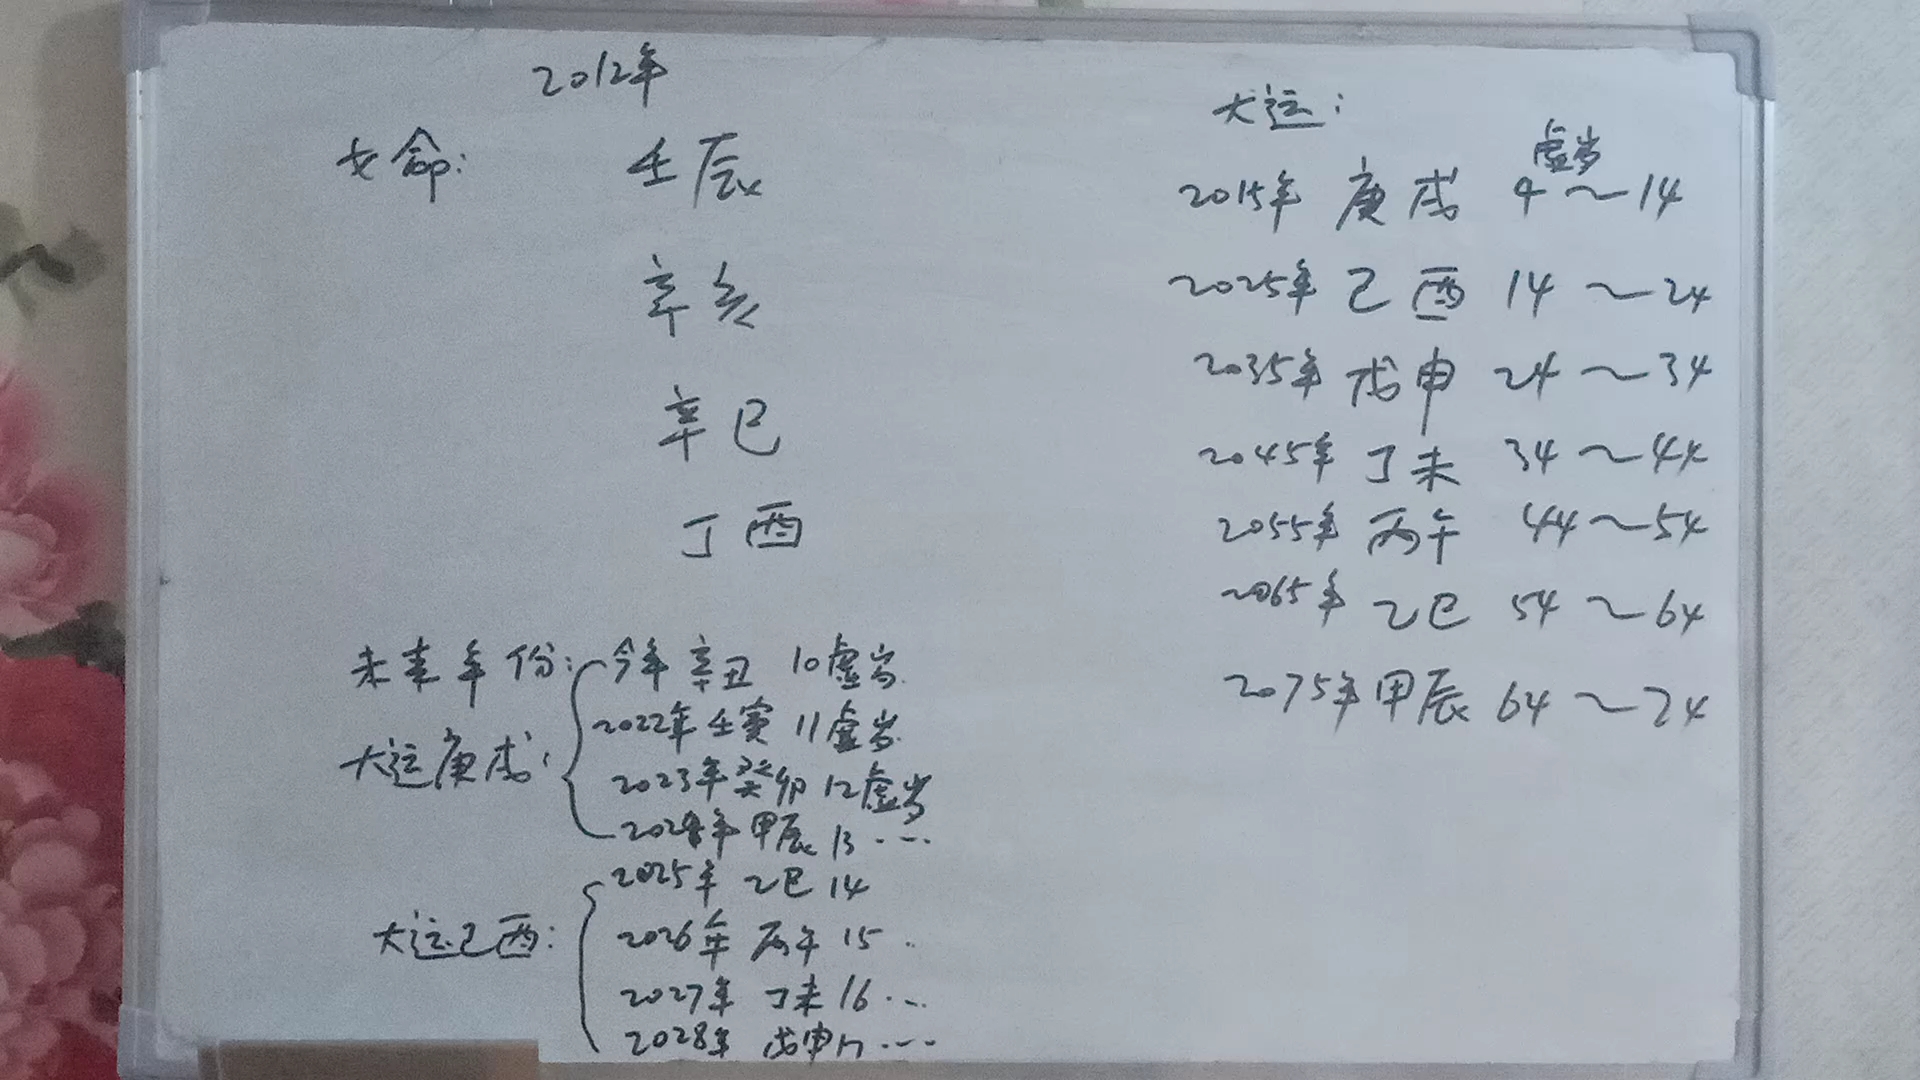 2012年
女命: 壬辰
辛亥
辛巳
丁酉
未来年份: 今年 辛丑 10虚岁
大运庚戌: 2022年 壬寅 11虚岁
2023年 癸卯 12虚岁
2024年 甲辰 13 ...
大运己酉: 2025年 乙巳 14
2026年 丙午 15 ..
2027年 丁未 16 ...
2028年 戊申 17 ...
大运:
虚岁
2015年 庚戌 4～14
2025年 己酉 14～24
2035年 戊申 24～34
2045年 丁未 34～44
2055年 丙午 44～54
2065年 乙巳 54～64
2075年 甲辰 64～74